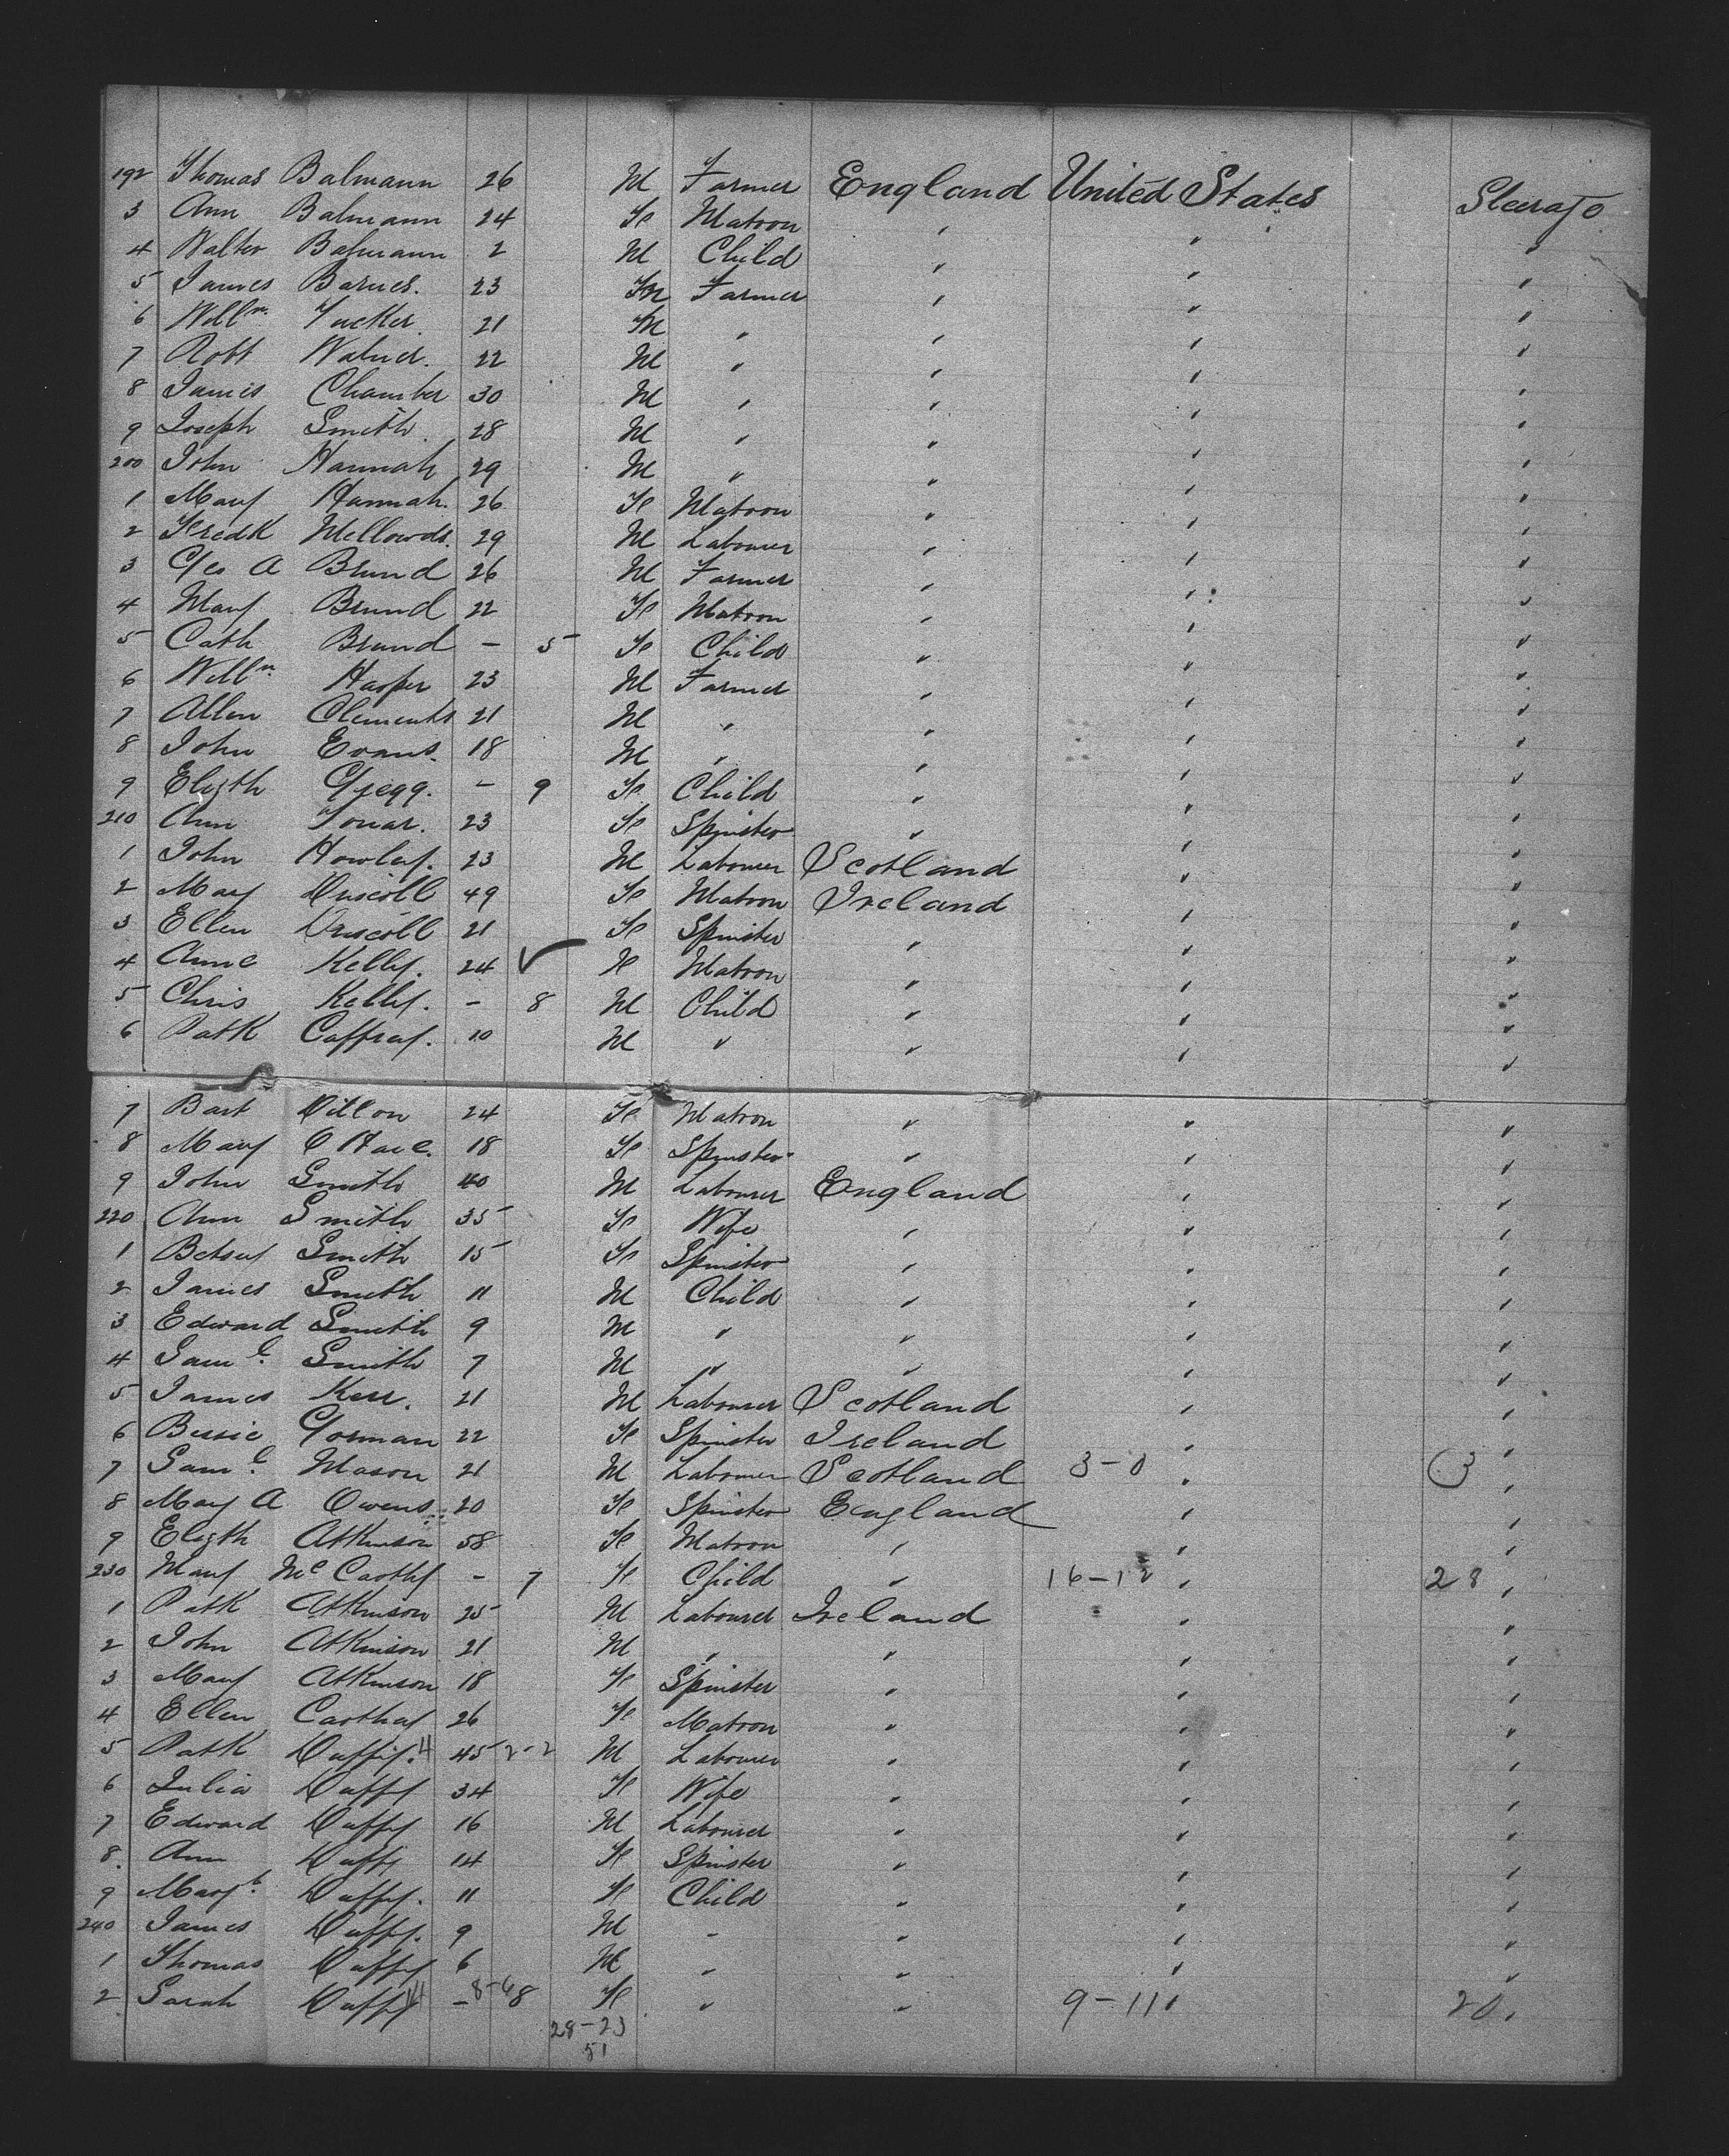 192 Thomas Balmann 26 M Farmer England United States Steerage
3 Ann Balmann 24 Fe Matron " " "
4 Walter Balmann 2 M Child " " "
5 James Barnes. 23 M Farmer " " "
6 Willm. Tucker 21 M " " " "
7 Robt 22 M " " " "
8 James Chamber 30 M " " " "
9 Joseph Smith 28 M " " " "
200 John Hannah 29 M " " " "
1 Mary Hannah. 26 Fe Matron " " "
2 Fredk 29 M Labourer " " "
3 Geo A Brund 26 M Farmer " " "
4 Mary Brund 22 Fe Matron " " "
5 Cath Brund - 5 Fe Child " " "
6 Willm. Harper 23 M Farmer " " "
7 Allen Clements 21 M " " " "
8 John Evans. 18 M " " " "
9 Elizth Gregg. - 9 Fe Child " " "
210 Ann 23 Fe Spinster " " "
1 John Howley. 23 M Labourer Scotland " "
2 Mary Driscoll 49 Fe Matron Ireland " "
3 Ellen Driscoll 21 Fe Spinster " " "
4 Anne Kelly. 24 ✓ Fe Matron " " "
5 Chris Kelly. - 8 M Child " " "
6 Patk Caffray. 10 M " " " "
7 Bart Dillon 24 Fe Matron " " "
8 Mary O Hare. 18 Fe Spinster " " "
9 John Smith 40 M Labourer England " "
220 Ann Smith 35 Fe Wife " " "
1 Betsey Smith 15 Fe Spinster " " "
2 James Smith 11 M Child " " "
3 Edward Smith 9 M " " " "
4 Saml. Smith 7 M " " " "
5 James Kerr. 21 M Labourer Scotland " "
6 Bessie Gorman 22 Fe Spinster Ireland " "
7 Saml. Mason 21 M Labourer Scotland 3-0 " 3 "
8 Mary A Owens 20 Fe Spinster England " "
9 Elizth Atkinson 58 Fe Matron " " "
230 Mary McCarthy - 7 Fe Child " 16-12 " 28 "
1 Patk Atkinson 25 M Labourer Ireland " "
2 John Atkinson 21 M " " " "
3 Mary Atkinson 18 Fe Spinster " " "
4 Ellen Carthay 26 Fe Matron " " "
5 Patk Duffy. 4 45 2-2 M Labourer " " "
6 Julia Duffy 34 Fe Wife " " "
7 Edward Duffy 16 M Labourer " " "
8. Ann Duffy 14 Fe Spinster " " "
9 Margt. Duffy. 11 Fe Child " " "
240 James Duffy. 9 M " " " "
1 Thomas Duffy 6 M " " " "
2 Sarah Duffy 14 - 8-6 8 Fe " " 9-11 " 20 "
28-23
51